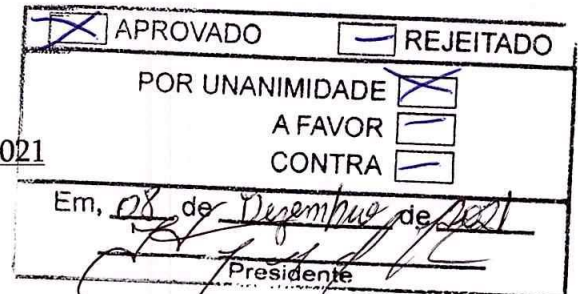 APROVADO REJEITADO
POR UNANIMIDADE
A FAVOR
021
CONTRA
Em, 08 de Dezembro de 2021
Presidente